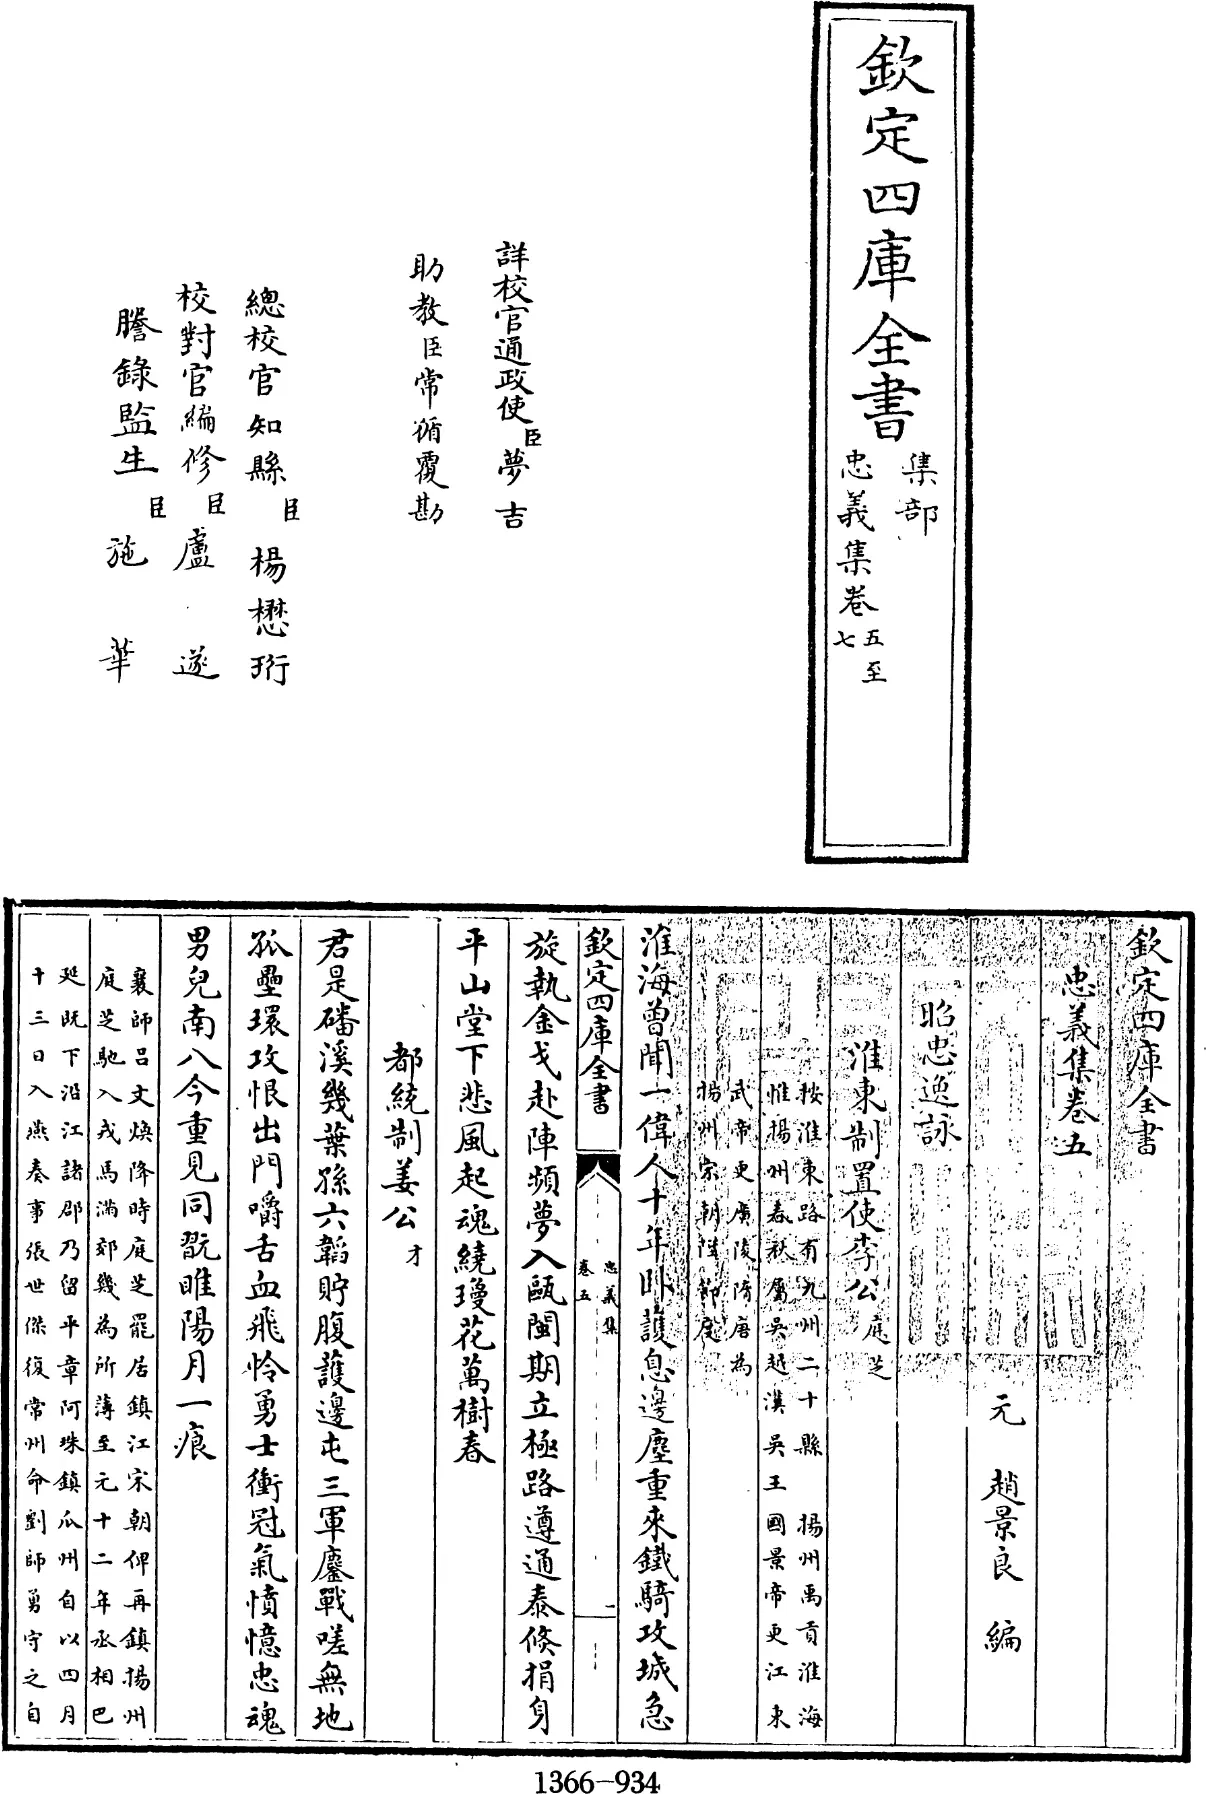 欽定四庫全書
集部
忠義集卷五至七
詳校官通政使臣夢吉
助教臣常循覆勘
總校官知縣臣楊懋珩
校對官編修臣盧遂
謄錄監生臣施華
欽定四庫全書
忠義集卷五
元 趙景良 編
昭忠逸詠
淮東制置使李公庭芝
按淮東路有九州二十縣 揚州禹貢淮海
惟揚州春秋屬吳越漢吳王國景帝更江東
武帝更廣陵隋唐為
揚州宋朝陞節度
淮海曾聞一偉人十年卧護息邊塵重來鐵騎攻城急
欽定四庫全書
忠義集
卷五
一
旋執金戈赴陣頻夢入甌閩期立極路遵通泰倐捐身
平山堂下悲風起魂繞瓊花萬樹春
都統制姜公才
君是磻溪幾葉孫六韜貯腹護邊屯三軍鏖戰嗟無地
孤壘環攻恨出門嚼舌血飛怜勇士衝冠氣憤憶忠魂
男兒南八今重見同翫睢陽月一痕
襄師呂文煥降時庭芝罷居鎮江宋朝俾再鎮揚州
庭芝馳入戎馬滿郊幾為所薄至元十二年丞相巴
延既下沿江諸郡乃留平章阿珠鎮瓜州自以四月
十三日入燕奏事張世傑復常州命劉師勇守之自
1366-934